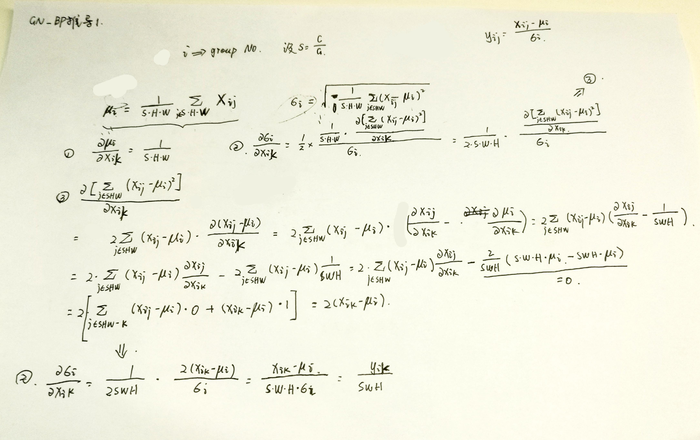 GN_BP推导1.
i ⇒ group No. 设 S = C/G.
y_ij = (x_ij - μ_i)/σ_i.
μ_i = 1/(S·H·W) Σ_{j∈S·H·W} X_ij
σ_i = √(1/(S·H·W) Σ_{j∈SHW} (X_ij - μ_i)²)
③.
① ∂μ_i/∂x_ik = 1/(S·H·W)
②. ∂σ_i/∂x_ik = 1/2 × (1/(S·H·W) · ∂[Σ_{j∈SHW} (X_ij - μ_i)²]/∂x_ik)/σ_i = 1/(2·S·W·H) · (∂[Σ_{j∈SHW} (X_ij - μ_i)²]/∂x_ik)/σ_i
③ ∂[Σ_{j∈SHW} (X_ij - μ_i)²]/∂x_ik
= 2Σ_{j∈SHW} (X_ij - μ_i) · ∂(X_ij - μ_i)/∂x_ik = 2Σ_{j∈SHW} (X_ij - μ_i) · (∂x_ij/∂x_ik - ∂μ_i/∂x_ik) = 2Σ_{j∈SHW} (X_ij - μ_i)(∂x_ij/∂x_ik - 1/SWH).
= 2·Σ_{j∈SHW} (X_ij - μ_i) ∂x_ij/∂x_ik - 2Σ_{j∈SHW} (X_ij - μ_i) 1/SWH = 2·Σ_{j∈SHW} (X_ij - μ_i) ∂x_ij/∂x_ik - 2/SWH (S·W·H·μ_i - SWH·μ_i)
=0.
= 2[Σ_{j∈SHW-K} (X_ij - μ_i)·0 + (X_ik - μ_i)·1] = 2(X_ik - μ_i).
⇓
②. ∂σ_i/∂x_ik = 1/(2SWH) · 2(X_ik - μ_i)/σ_i = (X_ik - μ_i)/(S·W·H·σ_i) = y_ik/SWH